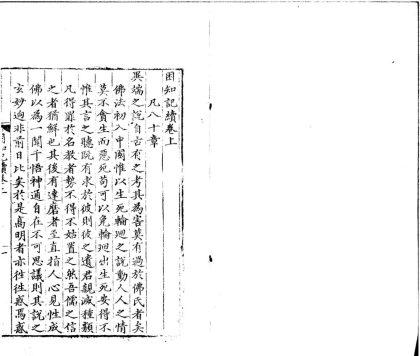 困知記續卷上
凡八十章
異端之說自古有之考其為害莫有過於佛氏者矣
佛法初入中國惟以生死輪廻之說動人人之情
莫不貪生而惡死苟可以免輪廻出生死安得不
惟其言之聽旣有求於彼則彼之遺君親滅種類
凡得罪於名教者勢不得不姑置之然吾儒之信
之者猶鮮也其後有達磨者至直指人心見性成
佛以為一聞千悟神通自在不可思議則其說之
玄妙迥非前日比矣於是高明者亦徃徃惑焉惑